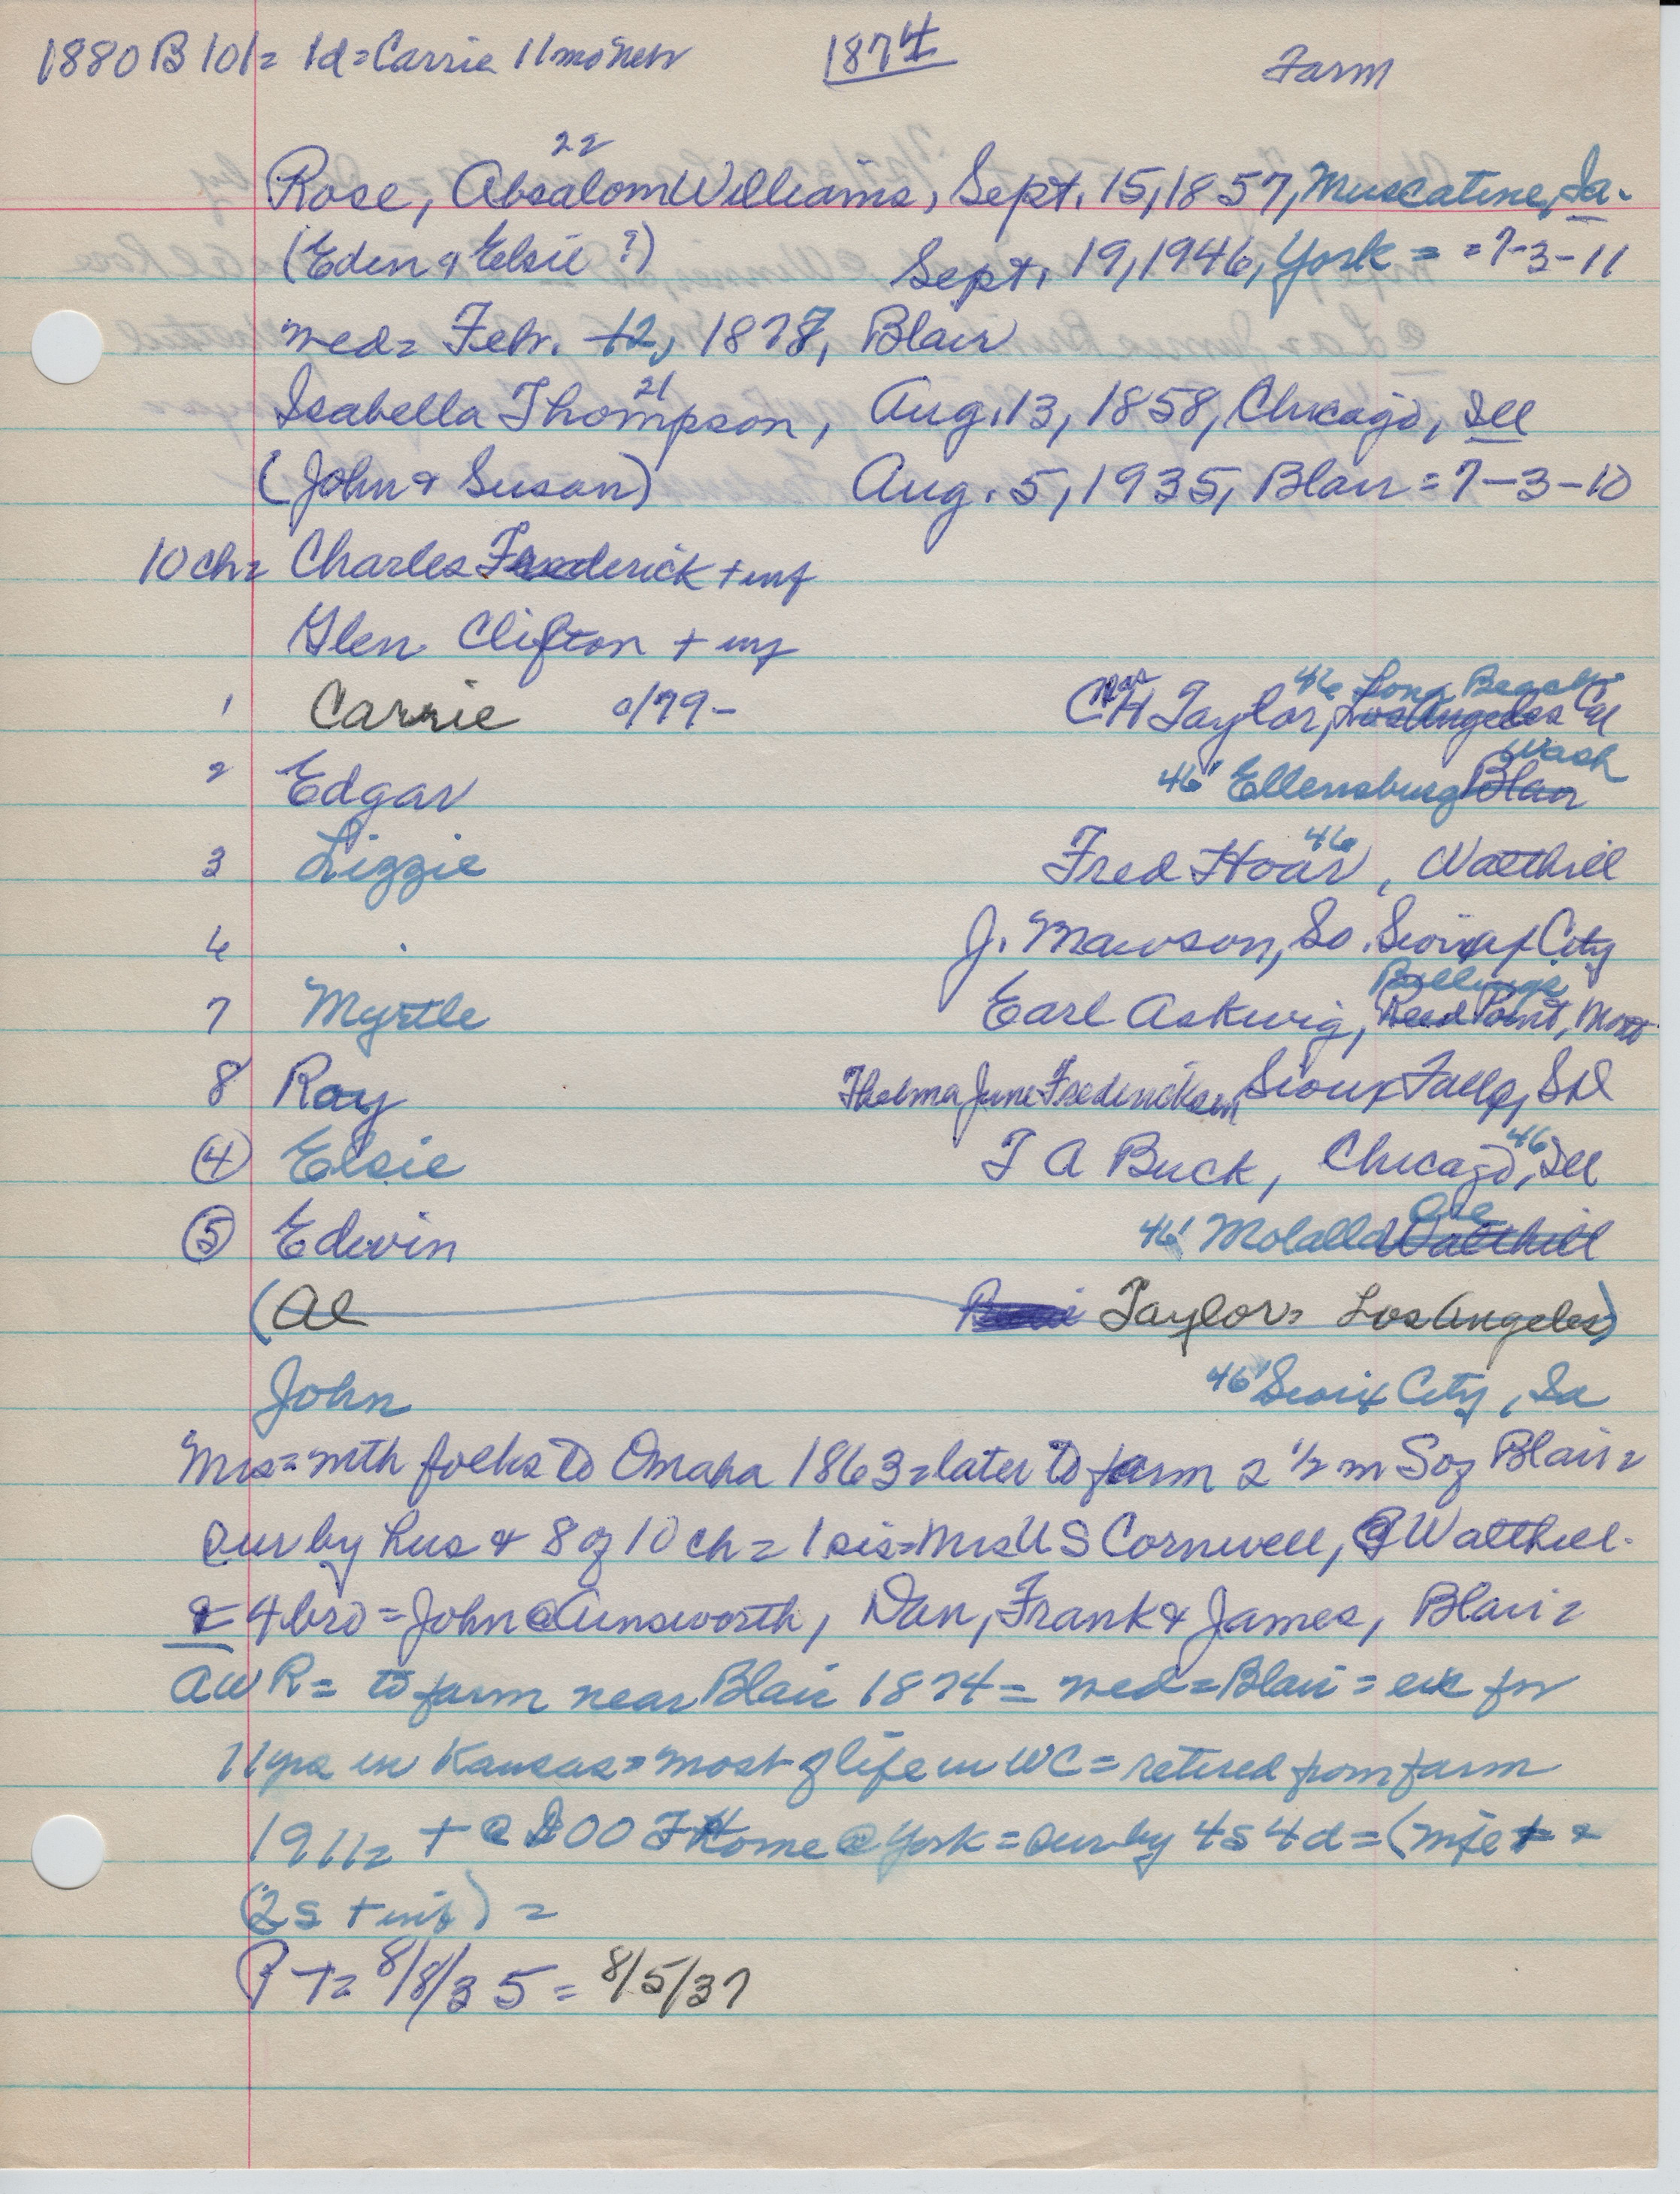 1880 B 101= 1d=Carrie 11mo Neb 1874 Farm
22
Rose, Absalom Williams, Sept. 15, 1857, Muscatine, Ia.
(Eden & Elsie ?) Sept. 19, 1946, York = =7-3-11
med= Feb. 12, 1878, Blair
21
Isabella Thompson, Aug. 13, 1858, Chicago, Ill
(John & Susan) Aug. 5, 1935, Blair = 7-3-10
10 ch= Charles Frederick + inf
Glen Clifton + inf
46 Long Beach
1 Carrie c/79- Chas H Taylor, Los Angeles Cal
Wash
2 Edgar 46' Ellensburg Blair
46
3 Lizzie Fred Hoar, Walthill
6 J. Mawson, So. Sioux City
Billings
7 Myrtle Earl Askwig, Reed Point, Mont
8 Ray Thelma June Fredericksen Sioux Falls, SD
46
(4) Elsie T A Buck, Chicago, Ill
Ore
(5) Edwin 46' Molalla Walthill
(Al Taylor= Los Angeles)
John 46' Sioux City, Ia
Mrs= with folks to Omaha 1863= later to farm 2 1/2 m S of Blair=
sur by hus & 8 of 10 ch = 1 sis= Mrs U S Cornwell, @ Walthill-
& 4 bro = John @ Ainsworth, Dan, Frank & James, Blair=
AWR= to farm near Blair 1874 = med = Blair = exc for
11 yrs in Kansas = most of life in WC = retired from farm
1911= + @ IOOF Home @ York = sur by 4s 4d = (wife + &
(2s + inf) =
PT= 8/8/35 = 8/5/37